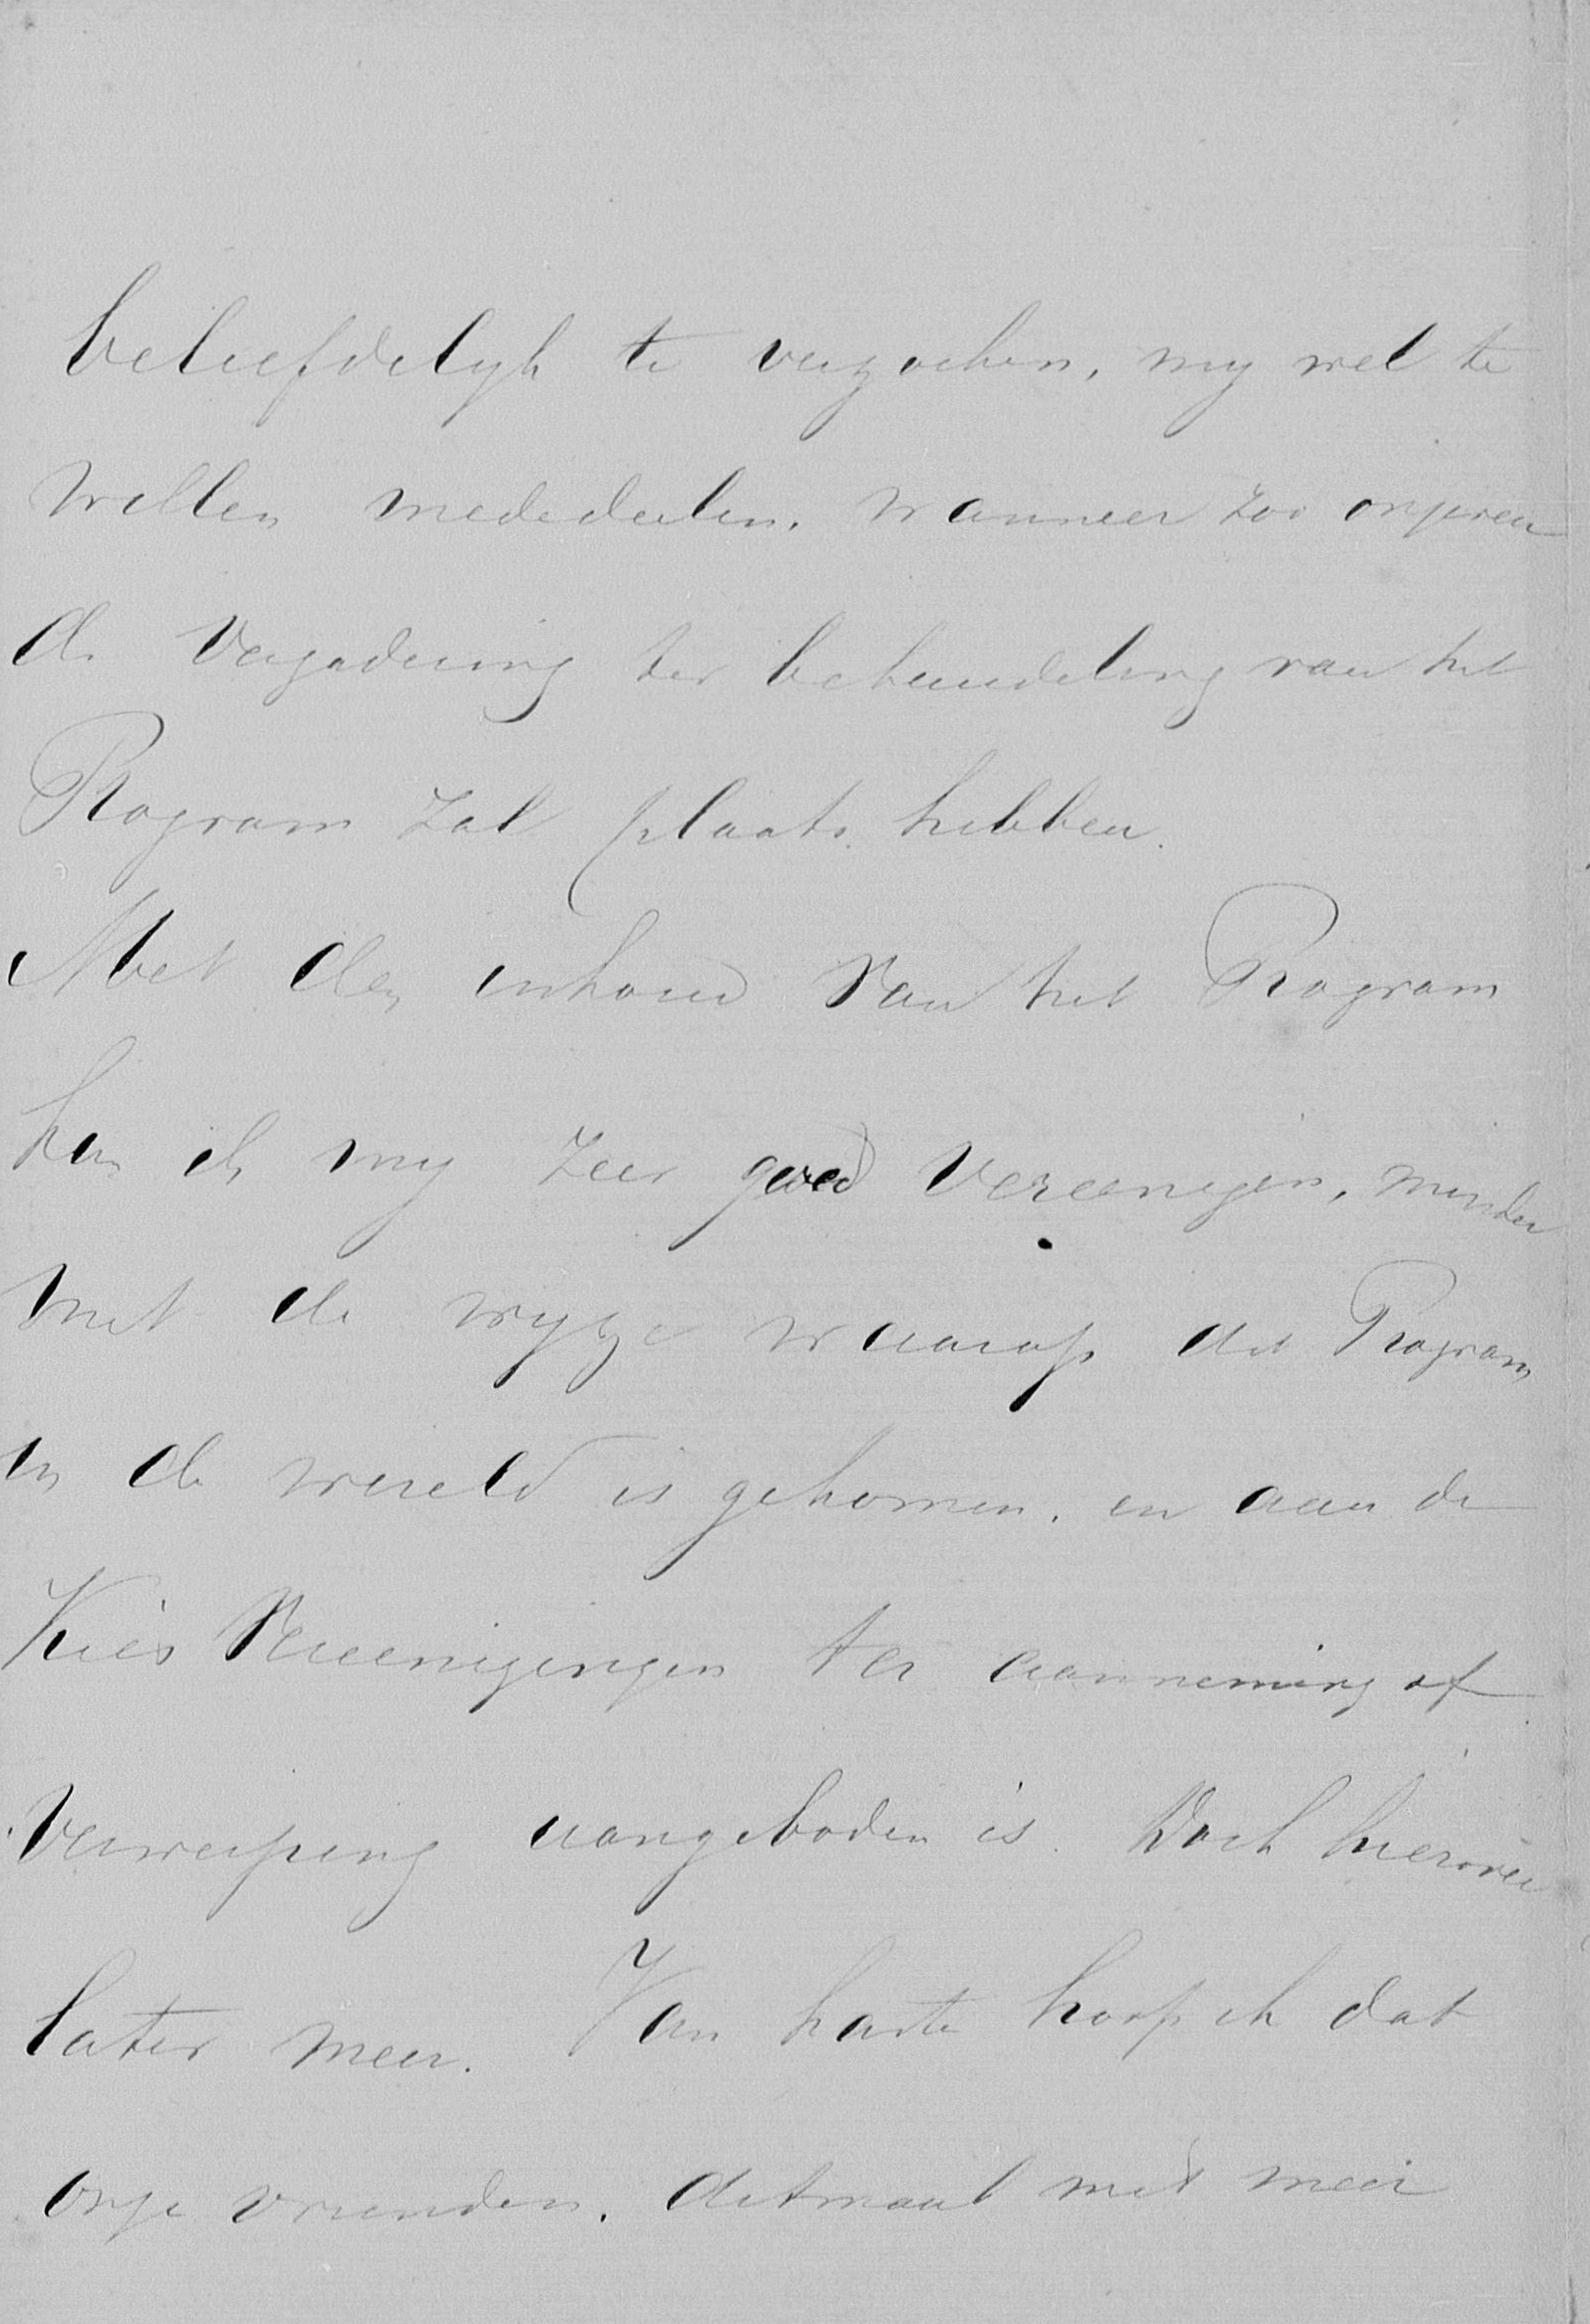 beliefdelyk te verzoeken, my wel te
willen mededeelen, wanneer zoo ongeveer
de Vergadering ter behandeling van het
Program zal plaats hebben.
Met den inhoud van het Program
kan ik my zeer goed vereenigen, minder
met de wyze waarop dit Program
in de wereld is gekomen, en aan de
Kies Vereenigingen ter aanneming of
verwerping aangeboden is. Doch hierover
later meer. Van harte hoop ik dat
onze vrienden, ditmaal met meer